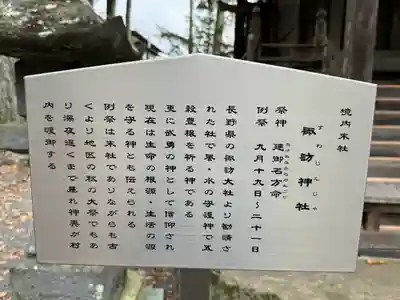 境内末社
諏訪神社
すわじんじゃ
祭神 建御名方命
たけみなかたのみこと
例祭 九月十九日~二十一日
長野県の諏訪大社より勧請さ
れた社で風・水の守護神で五
穀豊穣を祈る神である
更に武勇の神として信仰され
現在は生命の根源・生活の源
を守る神とも伝えられる
例祭は末社でありながらも古
くより地区の秋の大祭でもあ
り深夜遅くまで暴れ神輿が村
内を渡御する